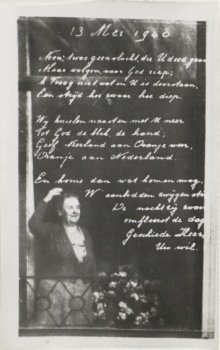 13 Mei 1940
Neen, 't was geen vlucht, die U deed gaan
Maar volgen, waar God riep;
A Vroeg niet wat en U is doorstaan,
Een strijd hoe zwaar hoe diep.
Wij knielen naast en met U neer
Tot God de blik, de hand;
Geef Neerland aan Oranje weer,
Oranje aan Nederland.
En kome dan wat komen mag,
W' aanbidden zwijgen stil
De nacht zij zwar
omfloerst de dag
Geschiede Heer
Uw wil.